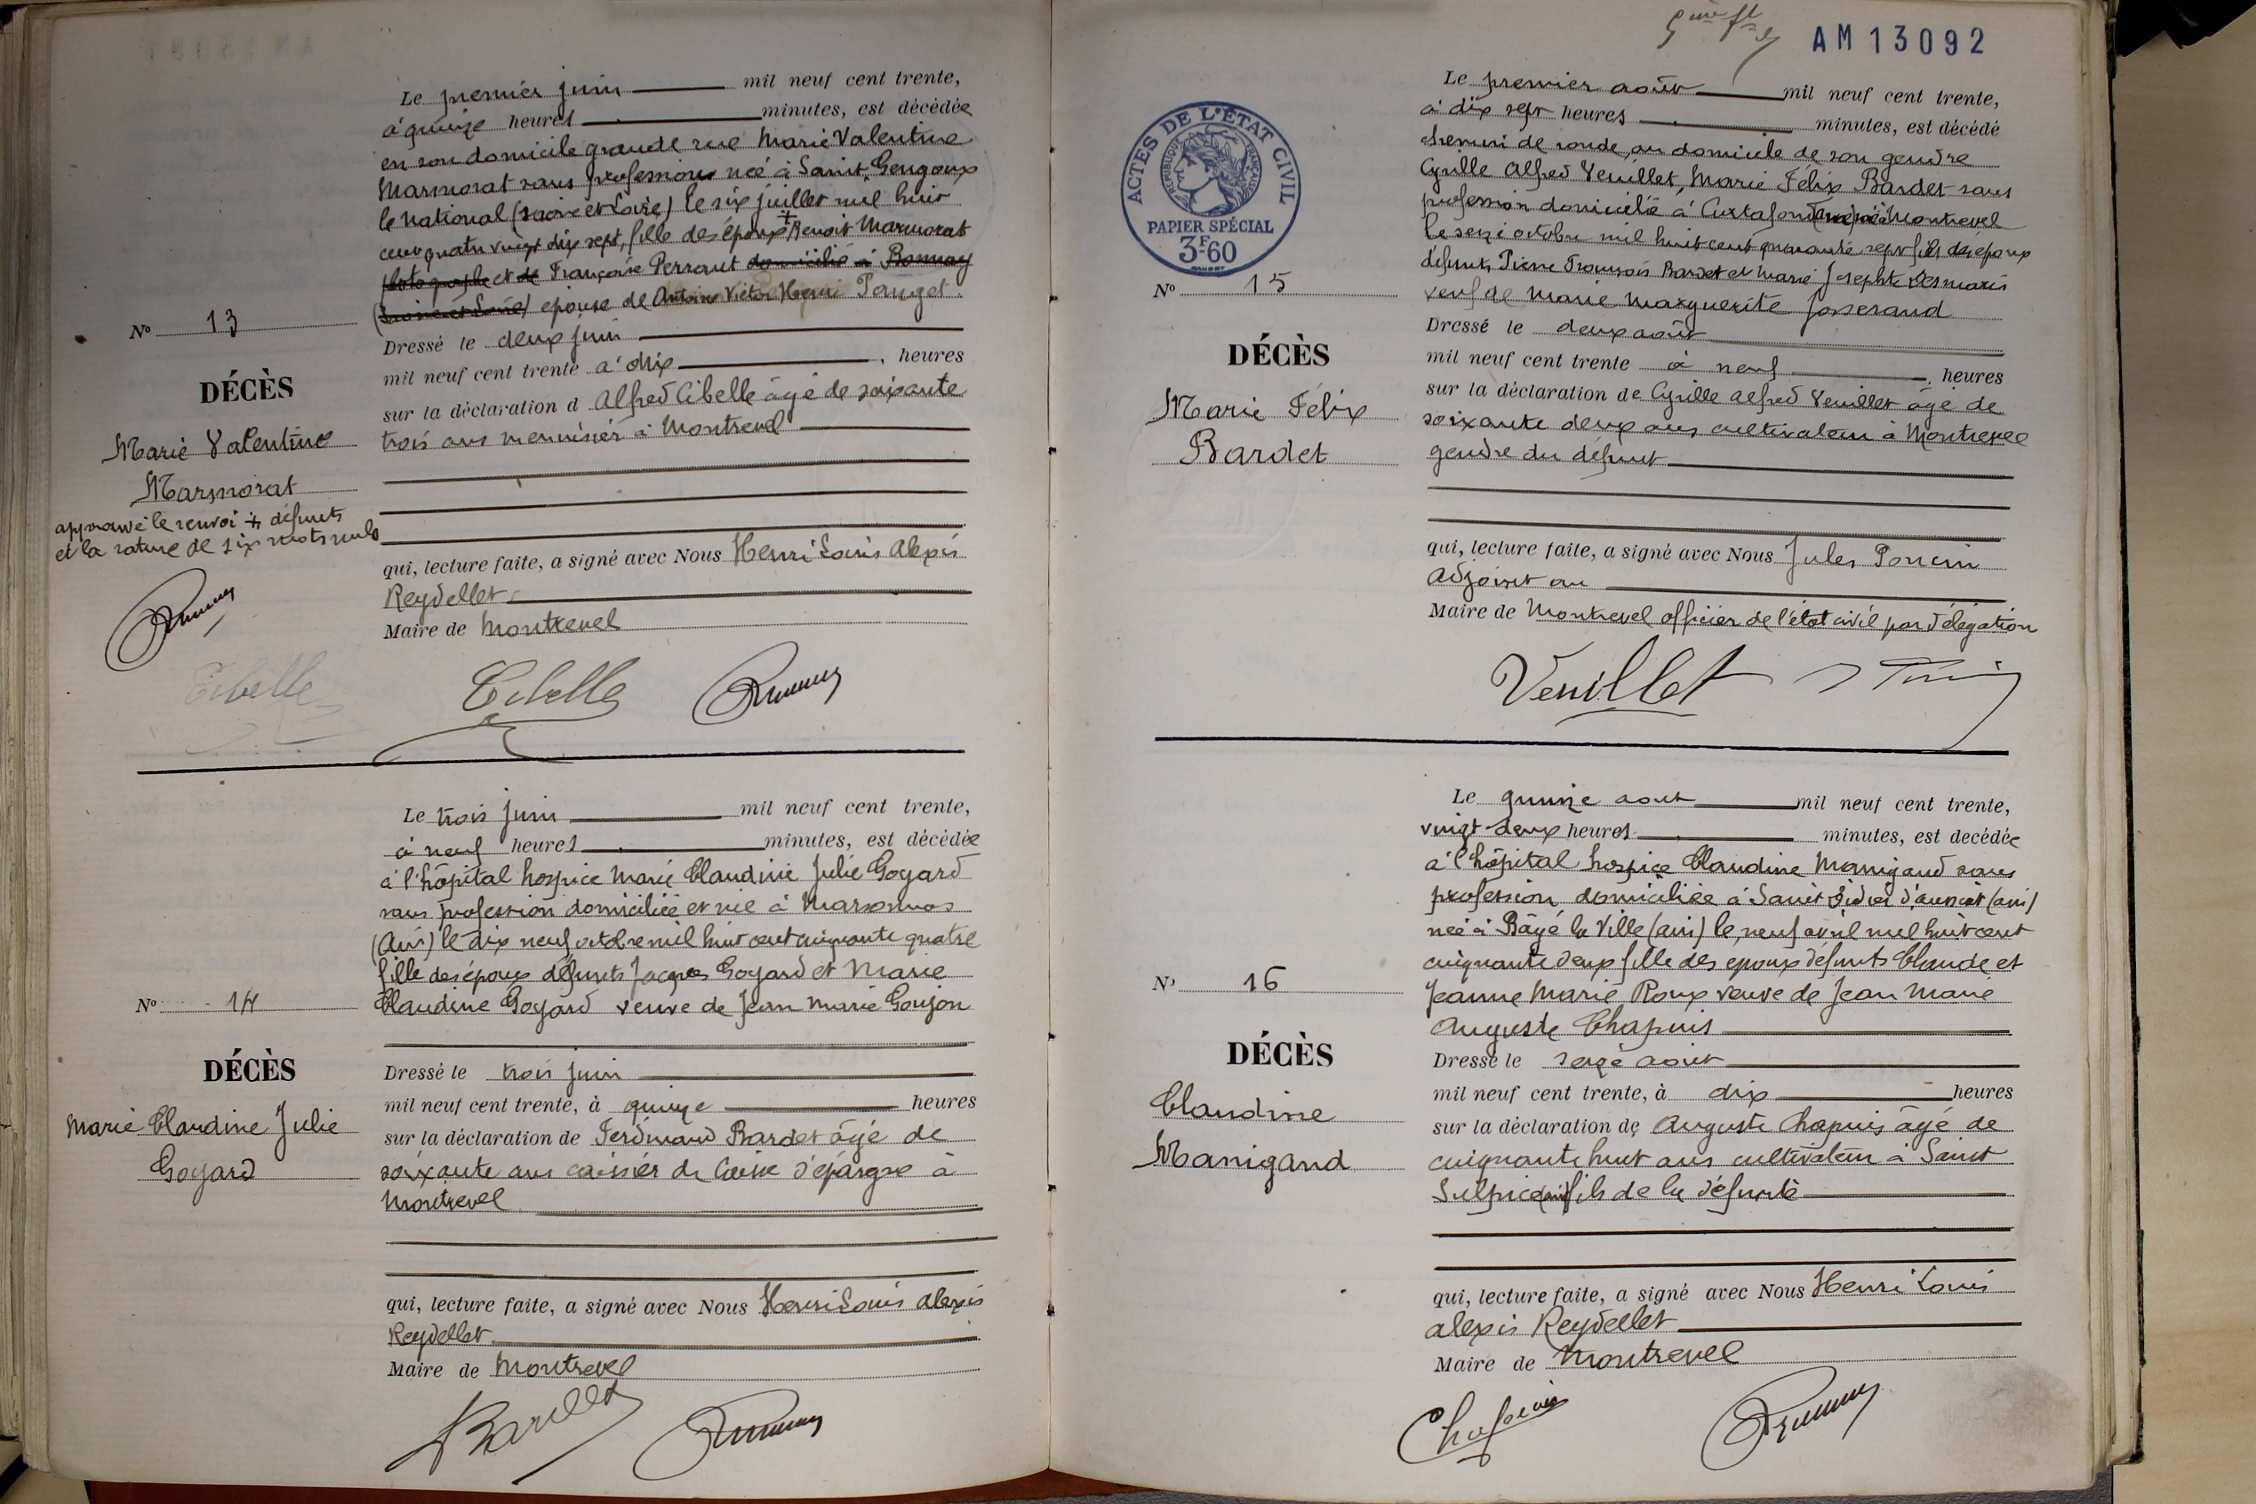 Le premier juin mil neuf cent trente,
à quinze heures minutes, est décédée
en son domicile grande rue Marie Valentine
Marmorat sans profession née à Saint Gengoux
le National (Saône et Loire) le six juillet mil huit
cent quatre vingt dix sept, fille des époux + Benoit Marmorat
photographe et de Françoise Perraut domicilié à Bonnay
(Saône et Loire) épouse de Antoine Victor Henri Pauget
Dressé le deux juin
mil neuf cent trente à dix , heures
sur la déclaration d Alfred Cibelle âgé de soixante
trois ans menuisier à Montrevel
qui, lecture faite, a signé avec Nous Henri Louis Alexis
Reydellet
Maire de Montrevel
No 13
DÉCÈS
Marie Valentine
Marmorat
approuvé le renvoi + défunts
et la rature de six mots nuls
Cibelle
Le trois juin mil neuf cent trente,
à neuf heures minutes, est décédée
à l'hôpital hospice Marie Claudine Julie Goyard
sans profession domiciliée et née à Marsonnas
(Ain) le dix neuf octobre mil huit cent cinquante quatre
fille des époux défunts Jacques Goyard et Marie
Claudine Goyard veuve de Jean Marie Goujon
Dressé le trois juin
mil neuf cent trente, à quinze heures
sur la déclaration de Ferdinand Bardet âgé de
soixante ans caissier de Caisse d'épargne à
Montrevel
qui, lecture faite, a signé avec Nous Henri Louis Alexis
Reydellet
Maire de Montrevel
No 14
DÉCÈS
Marie Claudine Julie
Goyard
AM 13092
ACTES DE L'ÉTAT CIVIL
RÉPUBLIQUE FRANÇAISE
PAPIER SPÉCIAL
3F.60
Le premier août mil neuf cent trente,
à dix sept heures minutes, est décédé
chemin de ronde, au domicile de son gendre
Cyrille Alfred Veuillet, Marie Félix Bardet sans
profession domicilié à Curtafond (Ain) né à Montrevel
le seize octobre mil huit cent quarante sept fils des époux
défunts Pierre François Bardet et Marie Josephte Desmaris
veuf de Marie Marguerite Josserand
Dressé le deux août
mil neuf cent trente à neuf , heures
sur la déclaration de Cyrille Alfred Veuillet âgé de
soixante deux ans cultivateur à Montrevel
gendre du défunt
qui, lecture faite, a signé avec Nous Jules Poncin
Adjoint au
Maire de Montrevel officier de l'état civil par délégation
Veuillet
No 15
DÉCÈS
Marie Félix
Bardet
Le quinze août mil neuf cent trente,
vingt-deux heures minutes, est decédée
à l'hôpital hospice Claudine Manigand sans
profession domiciliée à Saint Didier d'aussiat (ain)
née à Bâgé la Ville (ain) le neuf avril mil huit cent
cinquante deux fille des époux défunts Claude et
Jeanne Marie Roux veuve de Jean Marie
Auguste Chapuis
Dressé le seize août
mil neuf cent trente, à dix heures
sur la déclaration de Auguste Chapuis âgé de
cinquante huit ans cultivateur à Saint
Sulpice (ain) fils de la défunte
qui, lecture faite, a signé avec Nous Henri Louis
Alexis Reydellet
Maire de Montrevel
Chapuis
No 16
DÉCÈS
Claudine
Manigand